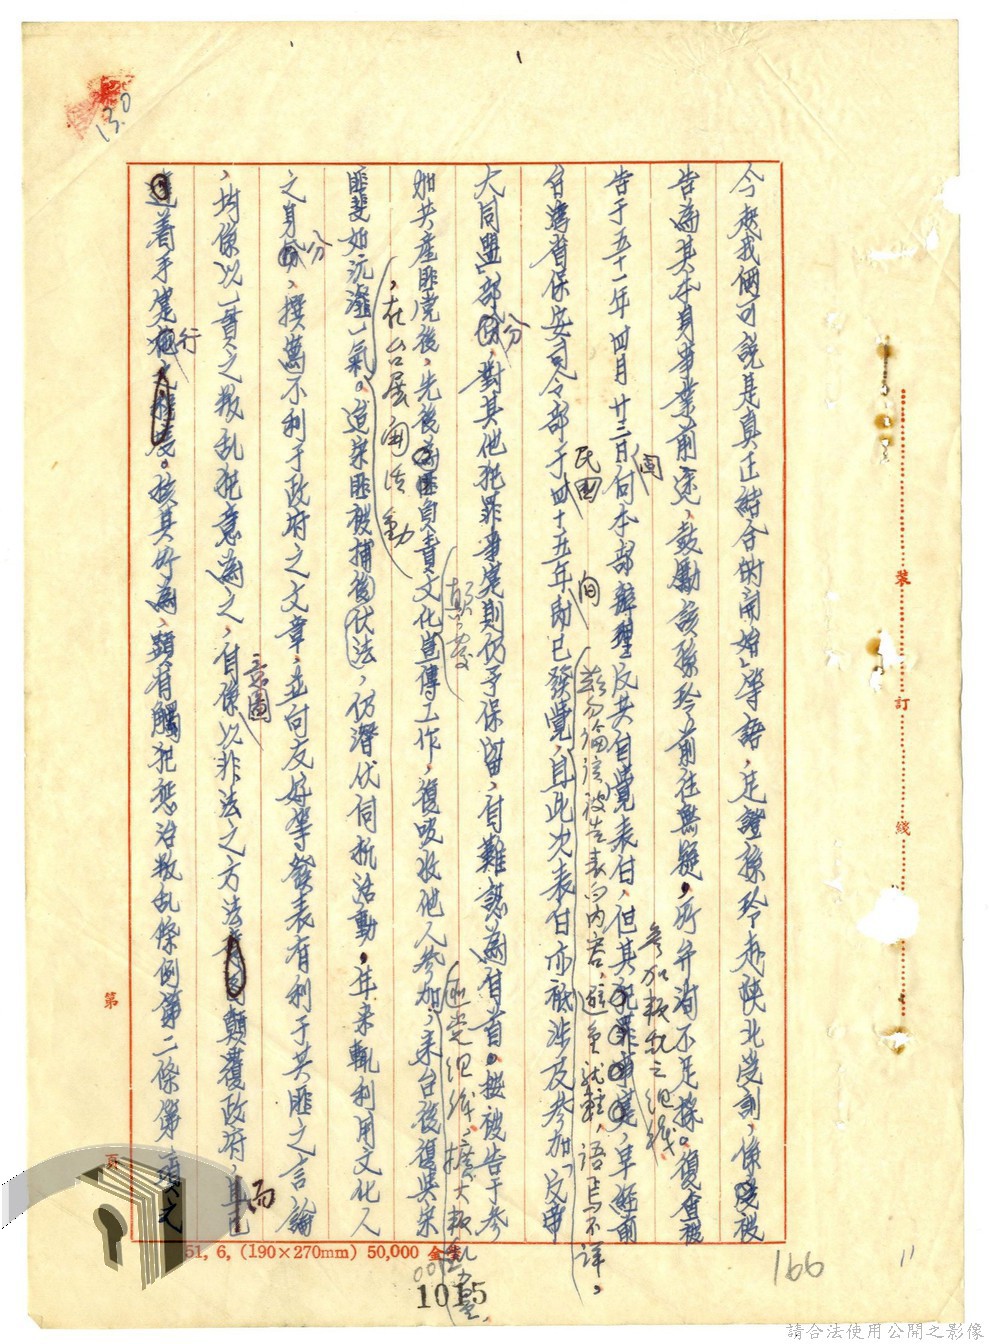 130
今起我倆可說是真正結合的開始」等語，足證孫玲赴陝北受訓，係被
告為其本身事業前途，鼓勵該孫玲前往無疑，所弁洵不足採。復查被
告于五十一年四月廿三日向本部辦理反共自覺表白，但其犯罪事實，早經前
台灣省保安司令部于四十五年即已發覺，且此次表白亦祇涉及參加「反帝
大同盟」部分，對其他犯罪事實則仍予保留，自難認為自首。按被告于參
加共產匪党後，先後負責文化宣傳工作，復吸收他人參加，來台後復與朱
匪斐如沆瀣一氣。迨朱匪被捕後伏法，仍潛伏伺机活動，年來輒利用文化人
之身分，撰寫不利于政府之文章，並向友好等發表有利于共匪之言論
，均係以一貫之叛乱犯意為之，自係以非法之方法顛覆政府，
着手實行。核其所為，顯有觸犯懲治叛乱條例第二條第一項之
間
民國
間
參加叛乱之組織
姑勿論該被告表白內容，避重就輕，語焉不詳，
匪党組織，擴大叛乱力量，
，在台展開活動
意圖
而
分
分
行
裝
訂
綫
第
頁
51, 6, (190×270mm) 50,000
001015
166
11
請合法使用公開之影像